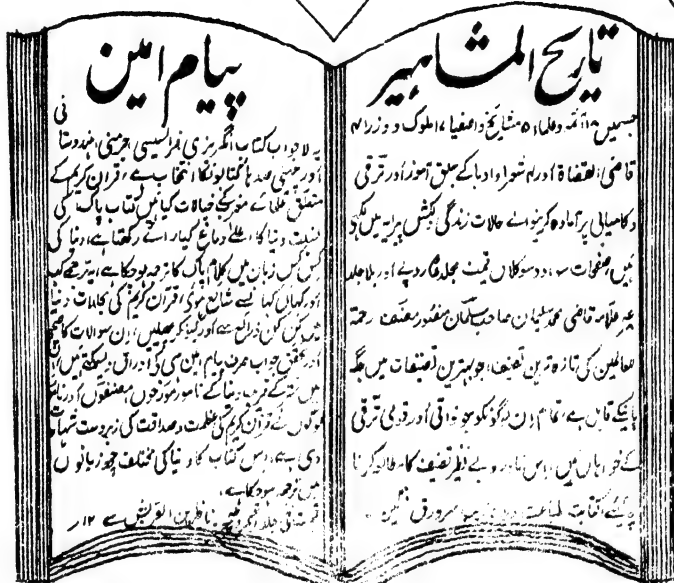 تاریخ المشاہیر
جسمیں ۱۸ آئمہ و علماء ۵ مشائخ و اصفیاء ۱۷ ملوک و وزراء ۴
قاضی القضاۃ اور ۴ شعرا و ادبا کے سبق آموز اور ترقی
و کامیابی پر آمادہ کرنیوالے حالات زندگی دلکش پیرایہ میں لکھے
ہیں، صفحات دو سو کلاں قیمت مجلد روپے اور بلا جلد
علامہ قاضی محمد سلیمان صاحب سلمان منصور مصنف رحمۃ
للعالمین کی تازہ ترین تصنیف، جو بہترین تصنیفات میں جگہ
پانیکے قابل ہے، تمام ان لوگونکو جو ذاتی اور قومی ترقی
کے خواہاں ہیں، اس نادر و بے نظیر تصنیف کا مطالعہ کرنا
چاہئے، کتابت طباعت سرورق
پیام امین
یہ لاجواب کتاب انگریزی فرانسیسی، جرمنی، ہندوستانی
اور چینی صدہا کتابونکا انتخاب ہے، قرآن کریم کے
متعلق علمائے غیر کے خیالات کیا ہیں کتاب پاک کی
نسبت دنیا کا اعلےٰ دماغ کیا رائے رکھتا ہے، دنیا کی
کس کس زبان میں کلام پاک کا ترجمہ ہوچکا ہے، یہ ترجمے کب
اور کہاں کہاں سے شائع ہوئے، قرآن کریم کی دنیا
میں کن کن ذرائع سے اور کیونکر پھیلیں، ان سوالات کا صحیح
اور جواب صرف پیام امین ہی کے اوراق دیسکتے ہیں،
میں کے قریب دنیا کے نامور مؤرخوں مصنفوں اور
نے قرآن کریم کی عظمت و صداقت کی زبردست شہادت
دی ہے، اس کتاب کا دنیا کی مختلف چھ زبانوں
میں ترجمہ ہوچکا ہے،
قیمت ۱۲